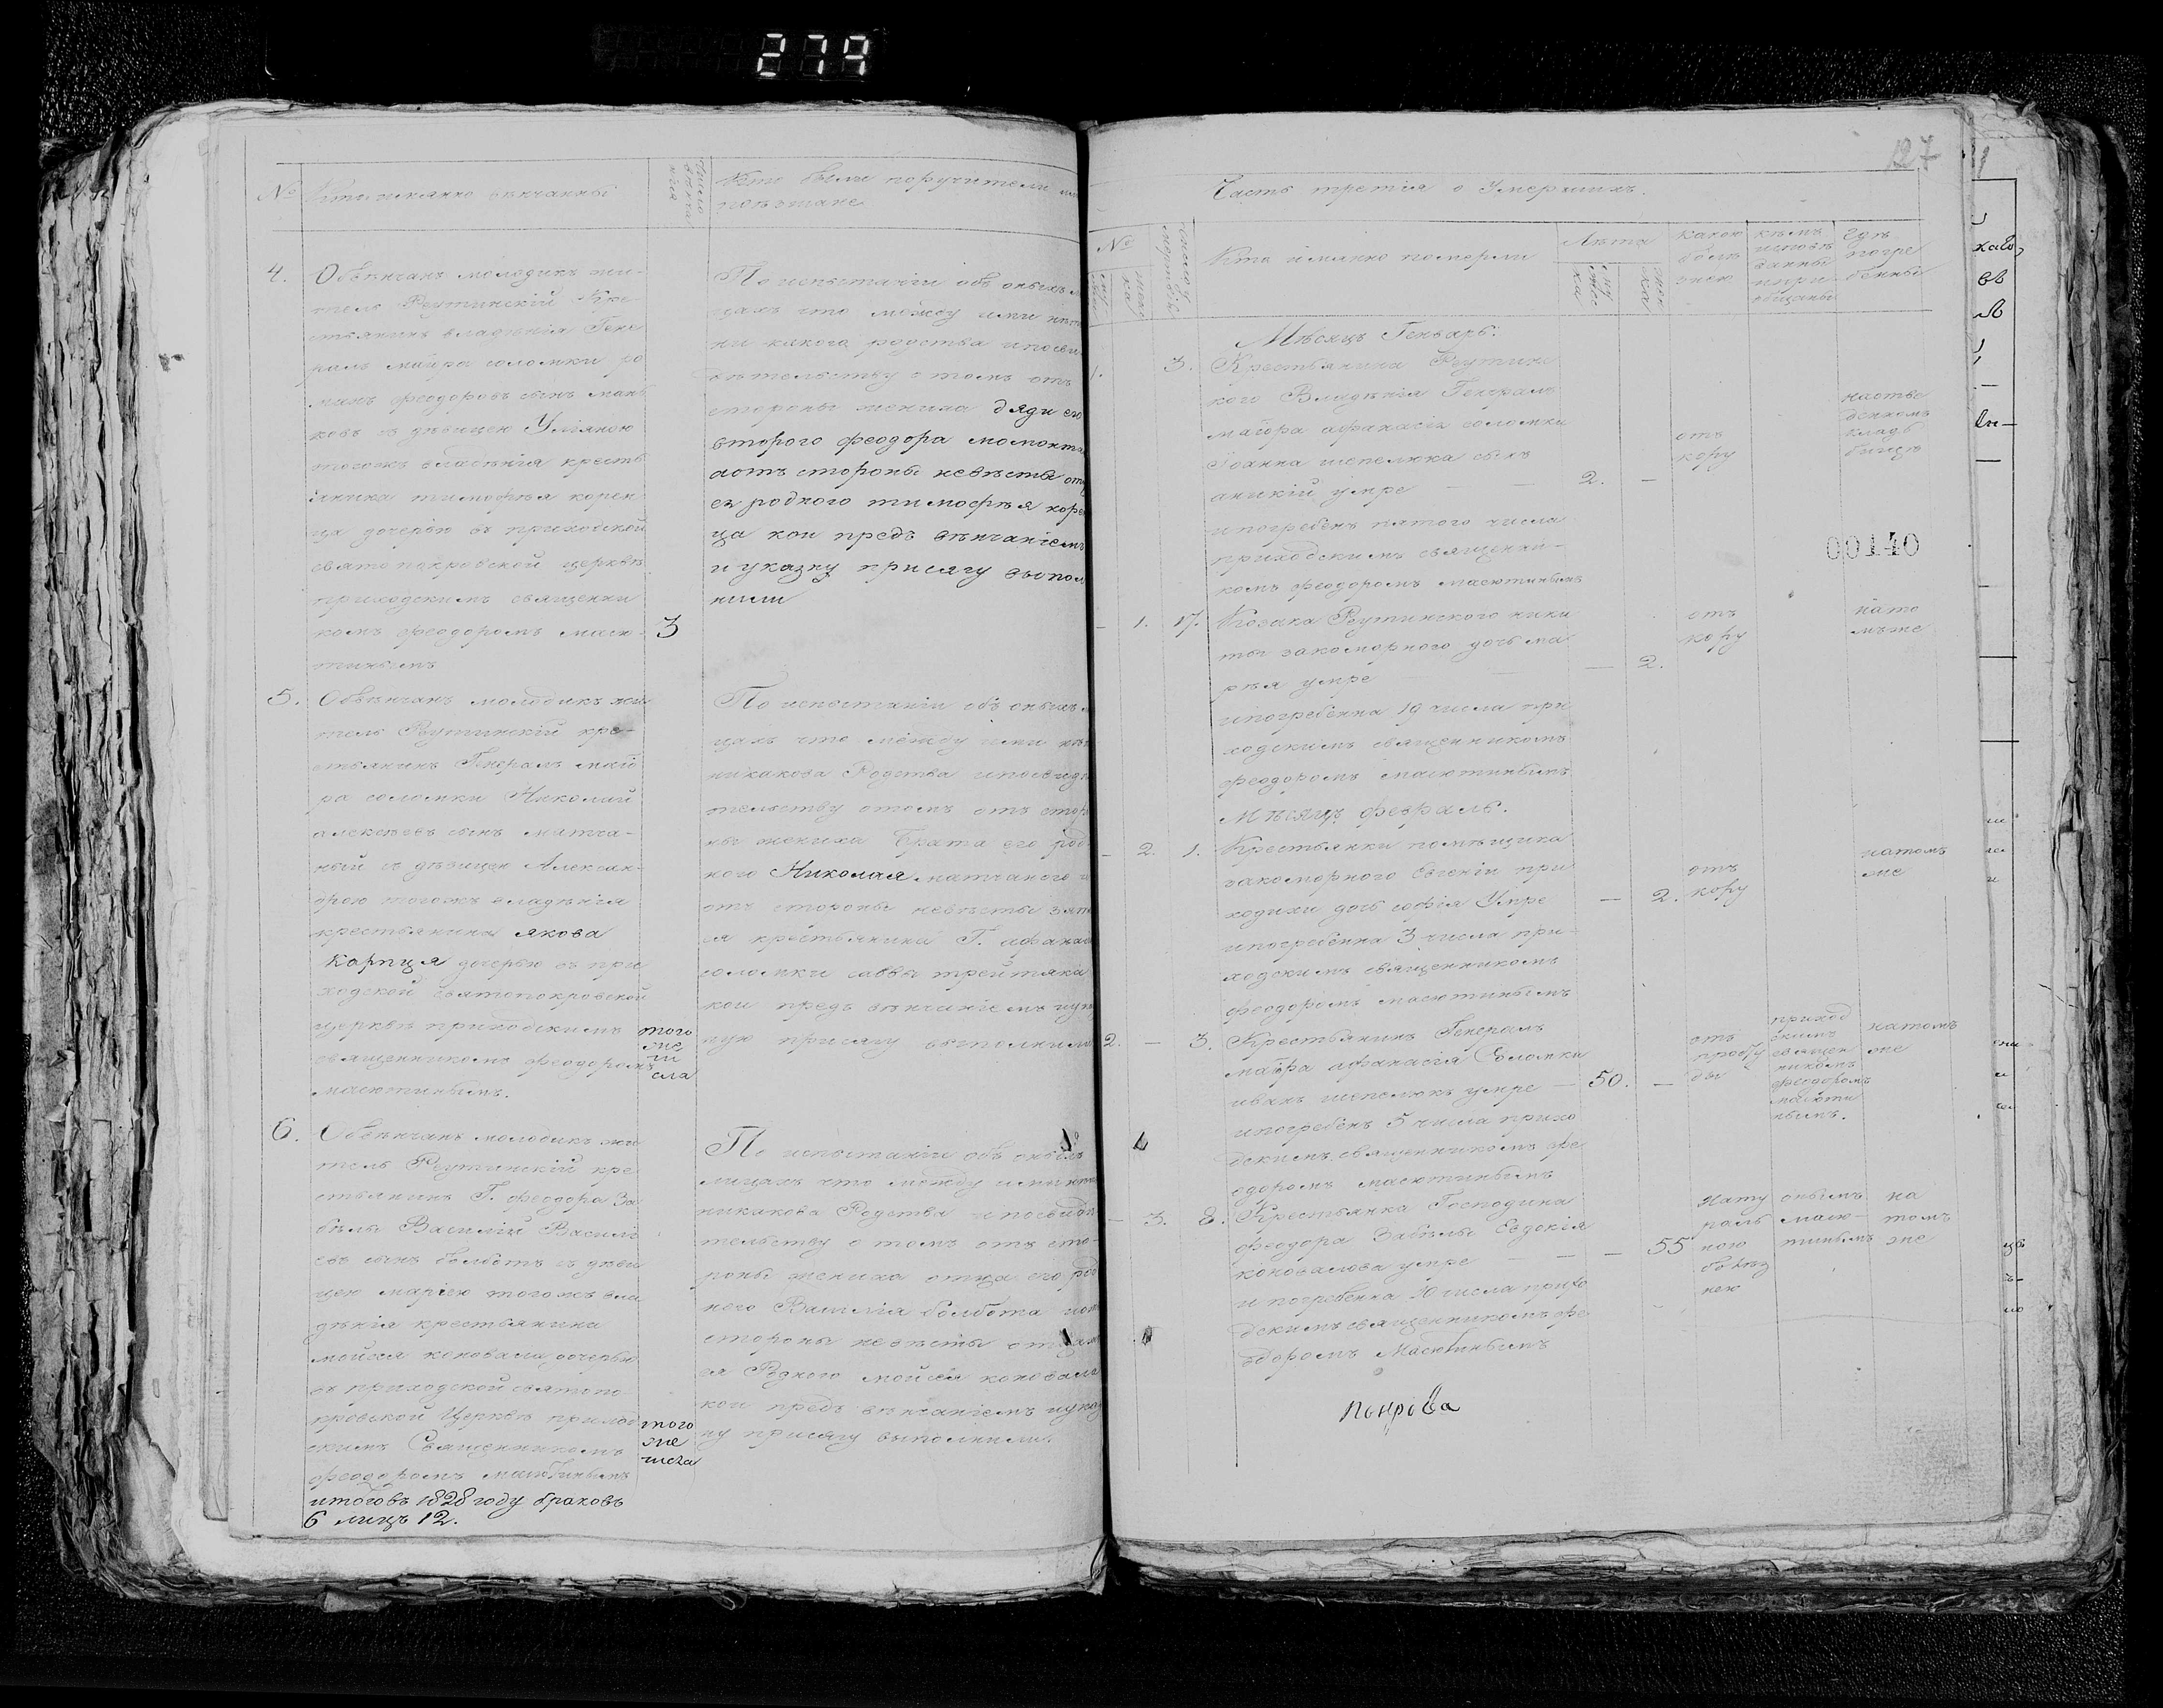 274
№
Кто имянно венчанны
число венчания
Кто были поручители или
поезжане
4.
Обвѣнчанъ молодикъ жи-
тель Реутинскій Кре
стьянинъ владѣнія Гене
ралъ маіора соломки ро
манъ феодоровъ сынъ мань
ковъ з дѣвицею Уліяною
тогожъ владѣнія кресть
янина тимофѣя корен
ца дочерью въ приходской
святопокровской церквѣ
приходскимъ священни
комъ феодоромъ масю-
тинымъ
3
По испытаніи объ оныхъ ли
цахъ что между ими нѣтъ
ни какого родства и посви
дѣтельству о томъ отъ
стороны жениха дяди его
второго феодора момонта
аотъ стороны невѣсты отца
ея родного тимофѣя корен
ца кои предъ вѣнчаніемъ
и указну присягу выпол
нили
5.
Обвѣнчанъ молодикъ жи
тель Реутинскій кре-
стьянинъ Генералъ маіо
ра соломки Николай
алексѣевъ сынъ матча-
ный з дѣвицею Алексан-
дрою тогожъ владѣнія
крестьянина якова
Карпця дочерью въ при
ходской святопокровской
церквѣ приходскимъ
священникомъ феодоромъ
масютинымъ.
того
же
чи
сла
По испытаніи объ оныхъ ли
цахъ что между ими нѣтъ
никакова Родства и посвидѣ
тельству отомъ отъ сторо
ны жениха Брата его род
ного Николая матчаного и
отъ стороны невѣсты зятя
ея крестьянина Г. афанасія
соломки саввы трейтяка
кои предъ вѣнчаніемъ иука
ную присягу выполнили
6.
Обвѣнчанъ молодикъ жи
тель Реутинскій кре
стьянинъ Г. феодора За
белы Василій Василі
евъ сынъ болботъ з дѣви
цею маріею тогожъ вла
дѣнія крестьянина
мойсея коновала дочерью
въ приходской святопо
кровской Церквѣ приход
скимъ Священникомъ
феодоромъ масютинымъ
того
же
числа
По испытаніи объ оныхъ
лицахъ что между ими нѣтъ
никакова Родства и посвидѣ
тельству о томъ отъ сто-
роны жениха отца его род
ного Василія болбота и отъ
стороны невѣсты отца
ея Родного мойсея коновала
кои предъ вѣнчаніемъ иуказ
ну присягу выполнили.
итого въ 1828 году браковъ
6 лицъ 12.
127
Часть третія о Умершихъ.
№
Кто имянно померли
Лѣта
какою
болѣ
знею
кѣмъ
исповѣ
данны
и при
общены
Гдѣ
погре
бенны
Мѣсяцъ Генварь:
1.
3.
Крестьянина Реутинс
кого Владѣнія Генералъ
маіора афанасія соломки
Іоанна шепелюка сынъ
аникій умре
и погребенъ пятого числа
приходскимъ священни-
комъ феодоромъ масютинымъ
2.
отъ
кору
наотве
денномъ
кладъ
бищѣ
00140
1.
17.
Козака Реутинского ники
ты закоморного дочь ма
рѣя умре
ипогребенна 19 числа при
ходскимъ священникомъ
феодоромъ масютинымъ
2.
отъ
кору
нато
мъже
Мѣсяцъ февраль.
2.
1.
Крестьянки помѣщика
закоморного Евгеніи при
ходихи дочь софія Умре
ипогребенна 3 числа при-
ходскимъ священникомъ
феодоромъ масютинымъ
2.
отъ
кору
натомъ
же
2.
3.
Крестьянинъ Генералъ
маіора афанасія Соломки
иванъ шепелюкъ умре
ипогребенъ 5 числа прихо
дскимъ священникомъ фе
одоромъ масютинымъ
50.
отъ
просту
ды
приход
скимъ
священ
никомъ
феодоромъ
масюти
нымъ.
натомъ
же
3.
8.
Крестьянка Господина
феодора Забѣлы Евдокія
коновалова умре
и погребенна 10 числа прихо
дскимъ священникомъ фе
одоромъ Масютинымъ
55
нату
раль
ною
болѣз
нею
онымъ
масю-
тинымъ
на
томъ
же
покрова